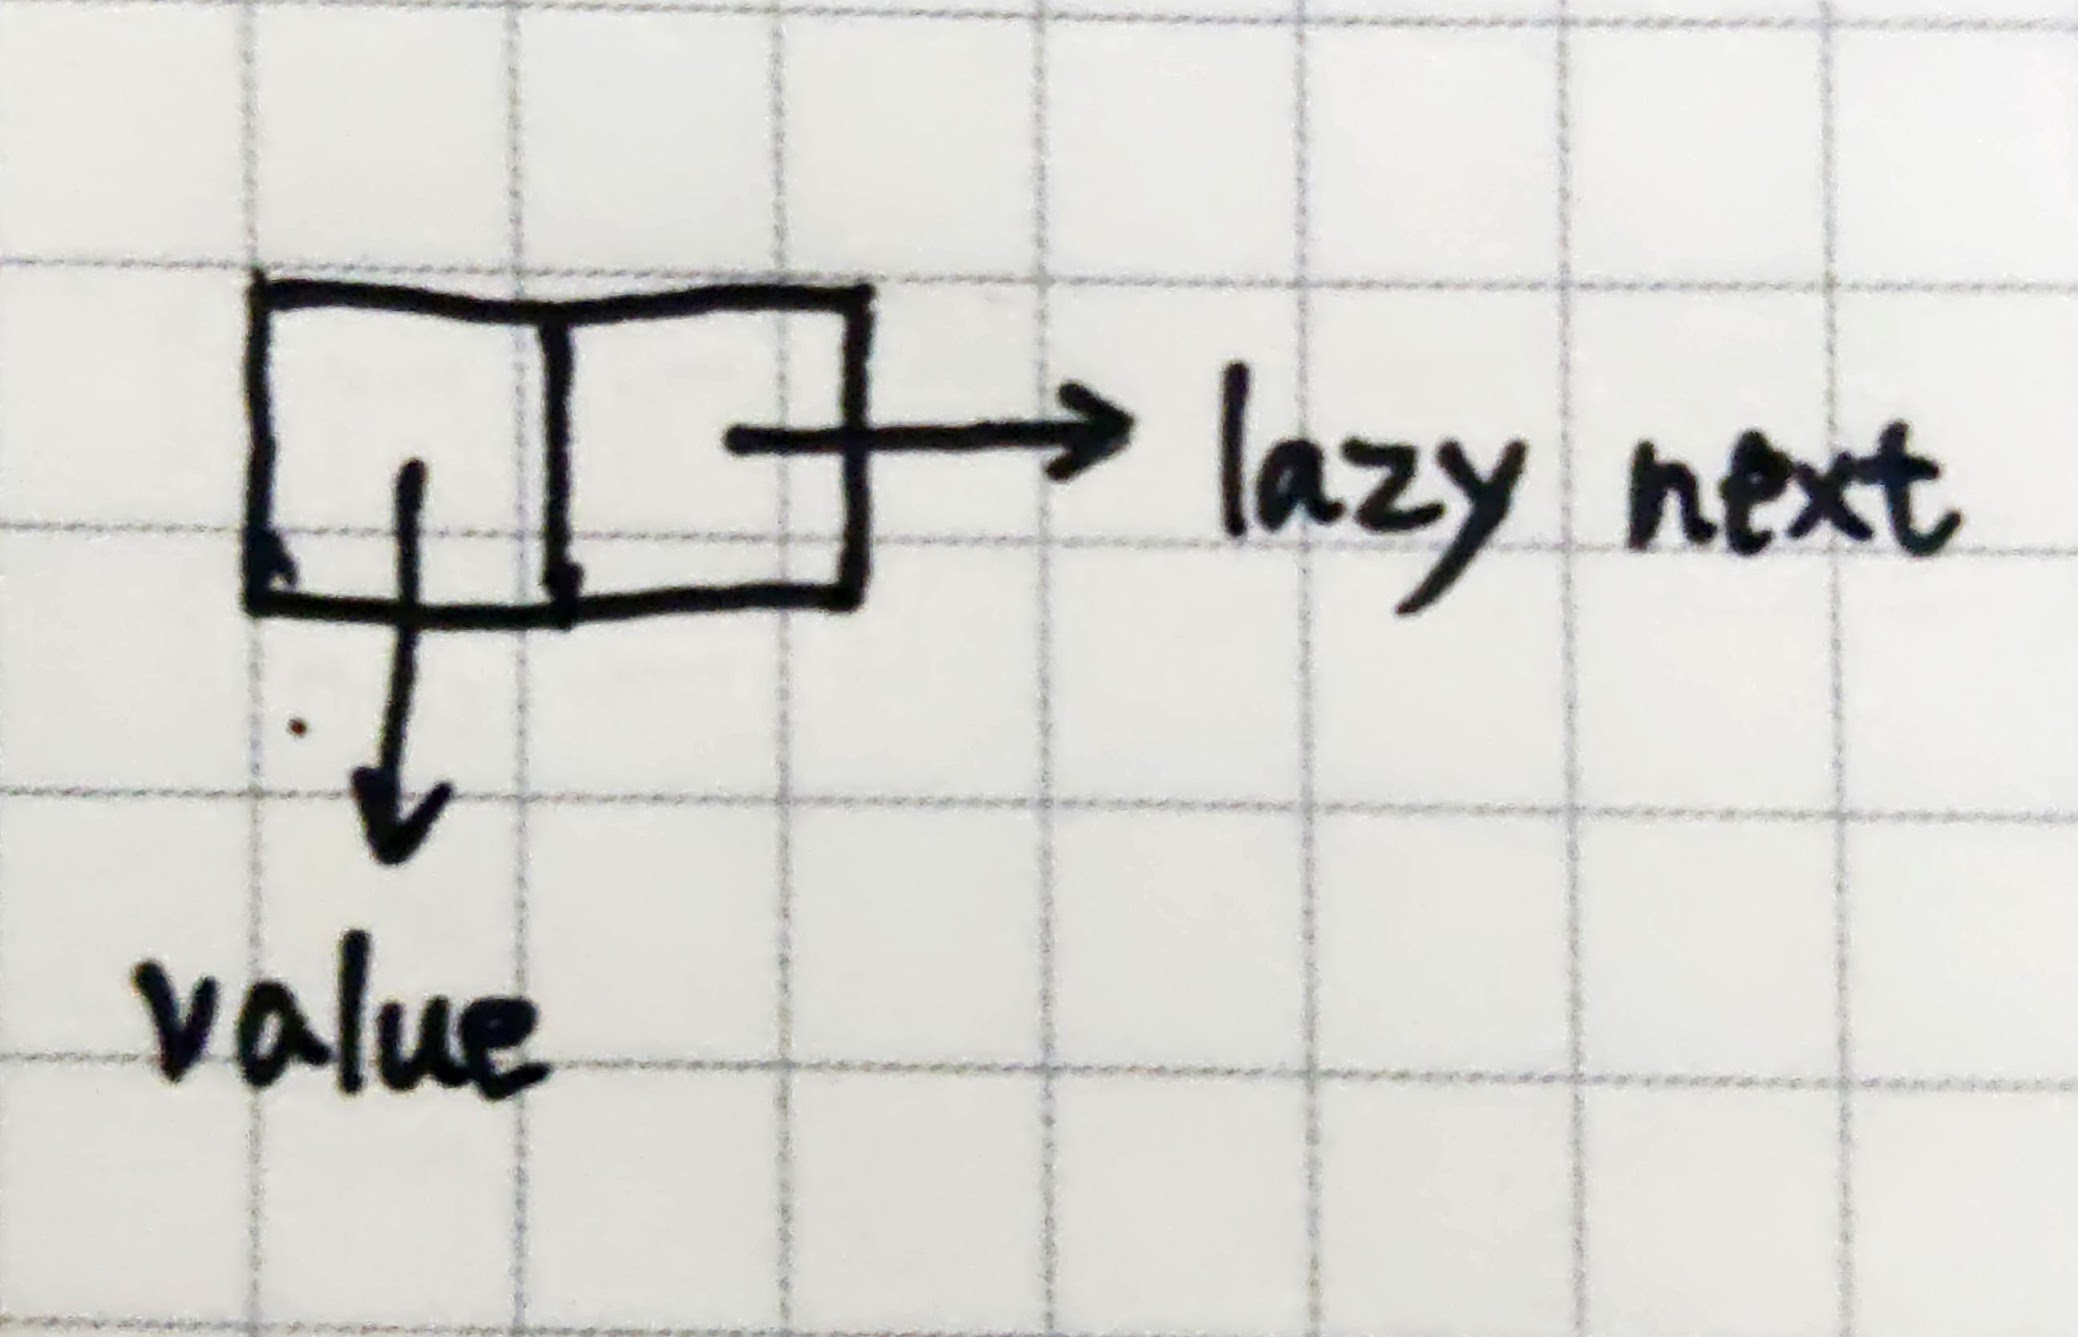 lazy next
value